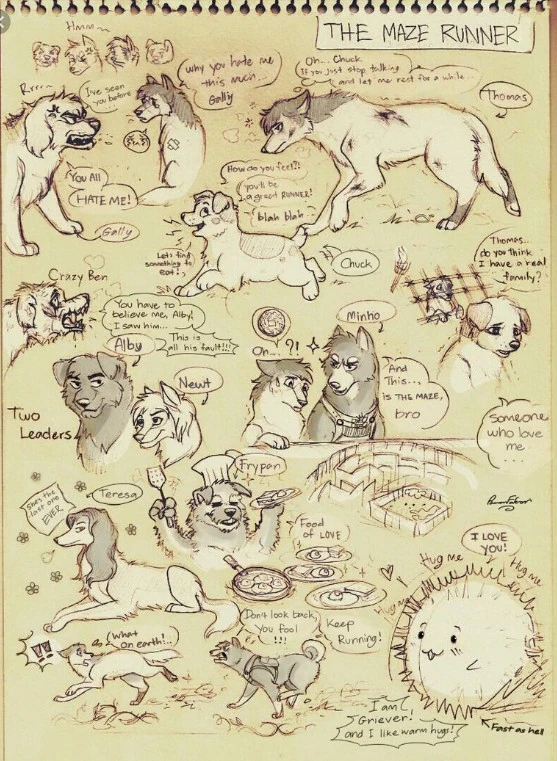 THE MAZE RUNNER
Hmm~
Rrrr~
I've seen
you before
why you hate me
this much...
Gally
Oh... Chuck
If you just stop talking
and let me rest for a while...
Thomas
You All
HATE ME!
Gally
How do you feel?!
you'll be
a great RUNNER!
blah blah
Let's find
something to
eat!
Chuck
Thomas..
do you think
I have a real
family?
Someone
who love
me
...
Crazy Ben
You have to
believe me, Alby!
I saw him...
This is
all his fault!!!
Alby
Newt
Two
Leaders
Oh... ?!
Minho
And
This...
is THE MAZE,
bro
She's the
last one
EVER
Teresa
Frypan
Food
of LOVE
I LOVE
YOU!
Hug me
Hug me
Hug me
What
on earth!..
!!
Don't look back,
you fool
!!!
Keep
Running!
I am
Griever!
and I like warm hugs!
Fast as hell